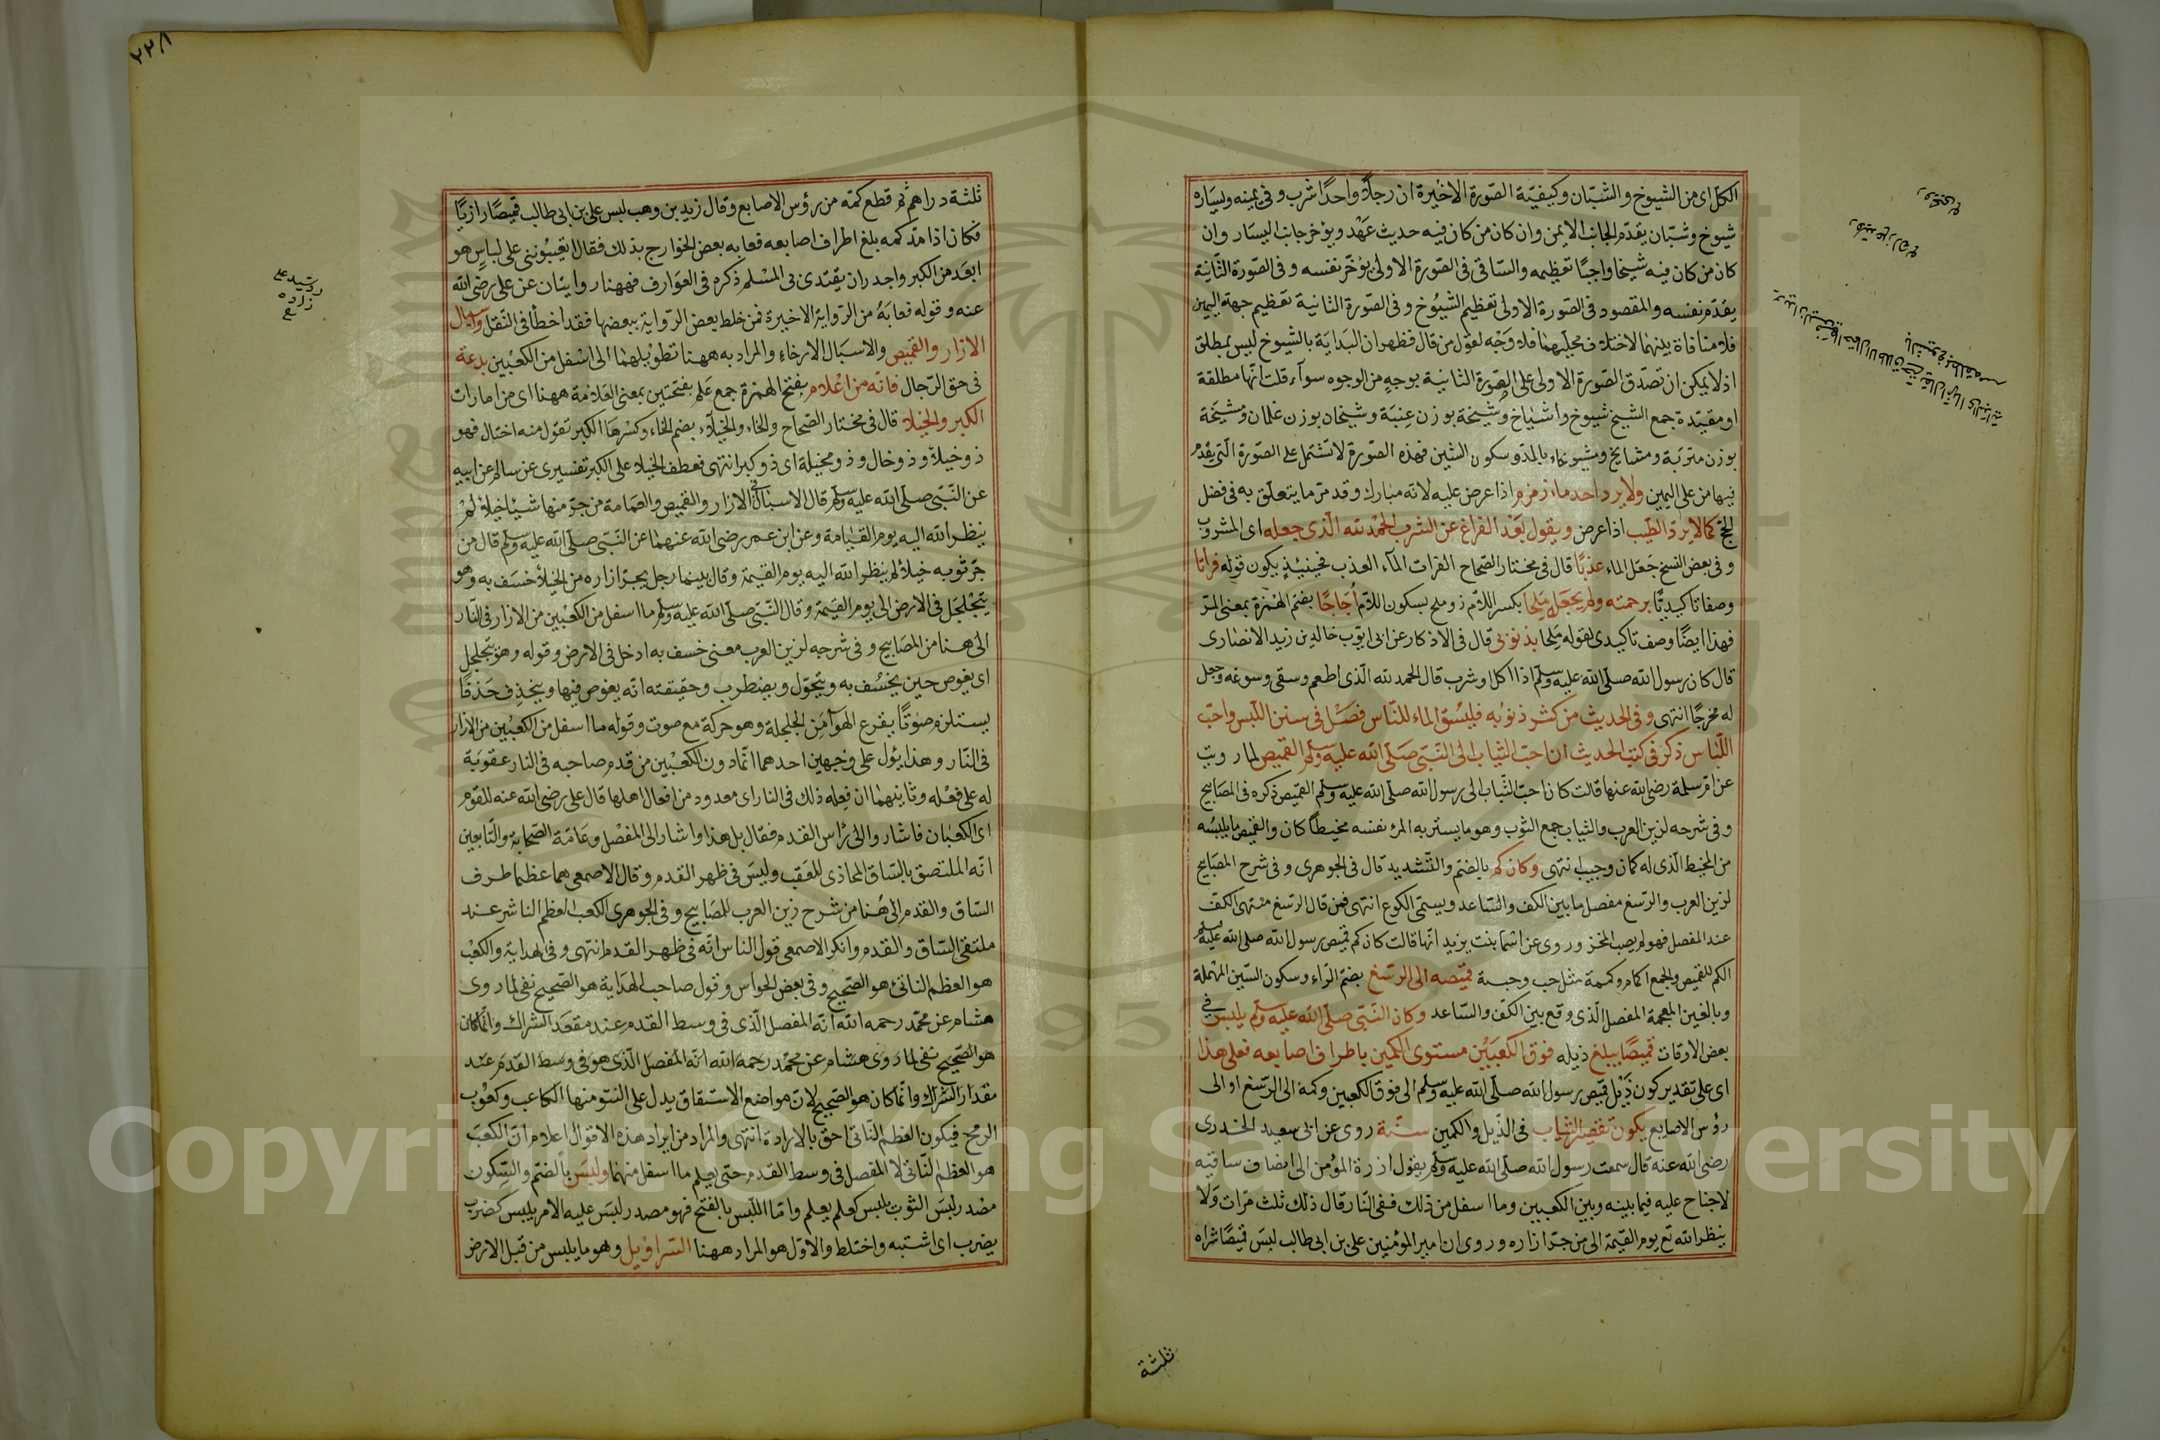 الكل اى من الشيوخ والشبان وكيفية الصورة الاخيرة ان رجلا واحدا شرب وفى يمينه ويساره
شيوخ وشبان يقدم الجانب الايمن وان كان من كان فيه حديث عهد ويؤخر جانب اليسار وان
كان من كان فيه شيخا واجبا تعظيمه والساقى فى الصورة الاولى يؤخر نفسه وفى الصورة الثانية
يقدم نفسه والمقصود فى الصورة الاولى تعظيم الشيوخ وفى الصورة الثانية تعظيم جهة اليمين
فلا منافاة بينهما لاختلاف محليهما فلا وجه لقول من قال فظهر ان البداية بالشيوخ ليس بمطلق
اذ لا يمكن ان تصدق الصورة الاولى على الصورة الثانية بوجه من الوجوه سواء قلت انها مطلقة
او مقيدة جمع الشيخ شيوخ واشياخ وشيخة بوزن عنبة وشيخان بوزن غلمان ومشيخة
بوزن متربة ومشايخ ومشيوخاء بالمد وسكون الشين فهذه الصورة لا تشتمل على الصورة التى يقدم
فيها من على اليمين ولا يرد احد ماء زمزم اذا عرض عليه لانه مبارك وقد مر ما يتعلق به فى فضل
الحج كما لا يرد الطيب اذا عرض ويقول بعد الفراغ عن الشرب الحمد لله الذى جعله اى المشروب
وفى بعض النسخ جعل الماء عذبا قال فى مختار الصحاح الفرات الماء العذب فحينئذ يكون قوله فراتا
وصفا تاكيديا برحمته ولم يجعل ملحا بكسر اللام ز وملح بسكون اللام اجاجا بضم الهمزة بمعنى المر
فهذا ايضا وصف تاكيدى لقوله ملحا بذنوبى قال فى الاذكار عن ابى ايوب خالد بن زيد الانصارى
قال كان رسول الله صلى الله عليه وسلم اذا اكل او شرب قال الحمد لله الذى اطعم وسقى وسوغه وجعل
له مخرجا انتهى وفى الحديث من كثر ذنوبه فليسق الماء للناس فصل فى سنن اللبس واحب
اللباس ذكر فى كتب الحديث ان احب الثياب الى النبى صلى الله عليه وسلم القميص لما رويت
عن ام سلمة رضى الله عنها قالت كان احب الثياب الى رسول الله صلى الله عليه وسلم القميص ذكره فى المصابيح
وفى شرحه لزين العرب والثياب جمع الثوب وهو ما يستر به المرء نفسه مخيطا كان والقميص ما يلبسه
من المخيط الذى له كمان وجيب انتهى وكان كم بالضم والتشديد قال فى الجوهرى وفى شرح المصابيح
لزين العرب والرسغ مفصل ما بين الكف والساعد ويسمى الكوع انتهى فمن قال الرسغ منتهى الكف
عند المفصل فهو لم يصب المحز وروى عن اسما بنت يزيد انها قالت كان كم قميص رسول الله صلى الله عليه وسلم
الكم للقميص والجمع اكمام وكممة مثل حب وحببة قميصه الى الرسغ بضم الراء وسكون السين المهملة
وبالغين المعجمة المفصل الذى وقع بين الكف والساعد وكان النبى صلى الله عليه وسلم يلبس فى
بعض الاوقات قميصا يبلغ ذيله فوق الكعبين مستوى الكمين باطراف اصابعه فعلى هذا
اى على تقدير كون ذيل قميص رسول الله صلى الله عليه وسلم الى فوق الكعبين وكمه الى الرسغ او الى
رؤس الاصابع يكون تقصير الثياب فى الذيل والكمين سنة روى عن ابى سعيد الخدرى
رضى الله عنه قال سمعت رسول الله صلى الله عليه وسلم يقول ازرة المؤمن الى انصاف ساقيه
لا جناح عليه فيما بينه وبين الكعبين وما اسفل من ذلك ففى النار قال ذلك ثلث مرات ولا
ينظر الله تع يوم القيمة الى من جر ازاره وروى ان امير المؤمنين على بن ابى طالب لبس قميصا شراه
ثلثة
٢٢٨
ثلثة دراهم ثم قطع كمه من رؤس الاصابع وقال زيد بن وهب لبس على بن ابى طالب قميصا رازيا
فكان اذا مد كمه بلغ اطراف اصابعه فعابه بعض الخوارج بذلك فقال اتعيبوننى على لباس هو
ابعد من الكبر واجدر ان يقتدى بى المسلم ذكره فى العوارف فههنا روايتان عن على رضى الله
عنه وقوله فعابه من الرواية الاخيرة فمن خلط بعض الرواية ببعضها فقد اخطأ فى النقل واسبال
الازار والقميص والاسبال الارخاء والمراد به ههنا تطويلهما الى اسفل من الكعبين بدعة
فى حق الرجال فانه من اعلام بفتح الهمزة جمع علم بفتحتين بمعنى العلامة ههنا اى من امارات
الكبر والخيلاء قال فى مختار الصحاح والخال والخيلاء بضم الخاء وكسرها الكبر تقول منه اختال فهو
ذو خيلاء وذو خال وذو مخيلة اى ذو كبر انتهى فعطف الخيلاء على الكبر تفسيرى عن سالم عن ابيه
عن النبى صلى الله عليه وسلم قال الاسبال فى الازار والقميص والعمامة من جر منها شيئا خيلاء لم
ينظر الله اليه يوم القيامة وعن ابن عمر رضى الله عنهما عن النبى صلى الله عليه وسلم قال من
جر ثوبه خيلاء لم ينظر الله اليه يوم القيمة وقال بينما رجل يجر ازاره من الخيلاء خسف به وهو
يتجلجل فى الارض الى يوم القيمة وقال النبى صلى الله عليه وسلم ما اسفل من الكعبين من الازار فى النار
الى هنا من المصابيح وفى شرحه لزين العرب معنى خسف به ادخل فى الارض وقوله وهو يتجلجل
اى يغوص حين يخسف به ويتحول ويضطرب وحقيقته انه يغوص فيها ويخذف حذفا
يستلزم صوتا بقرع الهوآ من الجلجلة وهو حركة مع صوت وقوله ما اسفل من الكعبين من الازار
فى النار وهذا يئول على وجهين احدهما انما دون الكعبين من قدم صاحبه فى النار عقوبة
له على فعله وثانيهما ان فعله ذلك فى النار اى معدود من افعال اهلها قال على رضى الله عنه للقوم
اى الكعبان فاشاروا الى رأس القدم فقال بل هذا واشار الى المفصل وعامة الصحابة والتابعين
انه الملتصق بالساق المحاذى للعقب وليس فى ظهر القدم وقال الاصمعى هما عظما طرف
الساق والقدم الى هنا من شرح زين العرب للمصابيح وفى الجوهرى الكعب العظم الناشر عند
ملتقى الساق والقدم وانكر الاصمعى قول الناس انه فى ظهر القدم انتهى وفى الهداية والكعب
هو العظم الناتئ هو الصحيح وفى بعض الحواش وقول صاحب الهداية هو الصحيح نفى لما روى
هشام عن محمد رحمه الله انه المفصل الذى فى وسط القدم عند مقعد الشراك وانما كان
هو الصحيح نفى لما روى هشام عن محمد رحمه الله انه المفصل الذى هو فى وسط القدم عند
مقدار الشراك وانما كان هو الصحيح لان مواضع الاشتقاق يدل على النتو منها الكاعب وكعوب
الرمح فيكون العظم الناتى احق بالارادة انتهى والمراد من ايراد هذه الاقوال اعلام ان الكعب
هو العظم الناتى لا المفصل فى وسط القدم حتى يعلم ما اسفل منهما ولبس بالضم والسكون
مصدر لبس الثوب يلبس كعلم يعلم واما اللبس بالفتح فهو مصدر لبس عليه الامر يلبس كضرب
يضرب اى اشتبه واختلط والاول هو المراد ههنا السراويل وهو ما يلبس من قبل الارض
رشيد على
زاده
Copyright © King Saud University